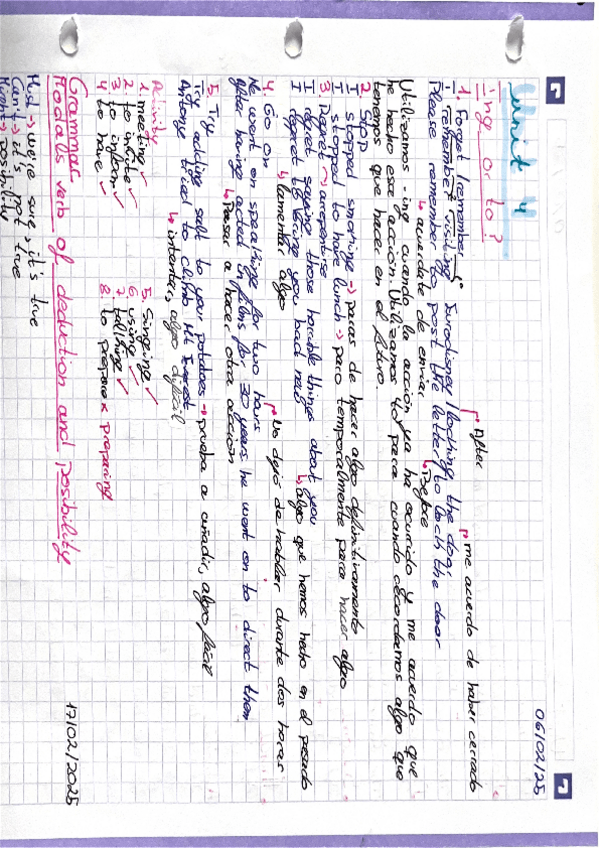 06/02/25
Unit 4
ing or to?
After
me acuerdo de haber cerrado
1. Forget / remember
I remember visiting Eurodisney / locking the dog.
Please remember to post the letter / to lock the door
Before
acuerdate de enviar
Utilizamos -ing cuando la acción ya ha ocurrido y me acuerdo que
he hecho esa acción. Utilizamos to para cuando recordamos algo que
tenemos que hacer en el futuro.
2. Stop
I stopped smoking → paras de hacer algo definitivamente
I stopped to have lunch → paro temporalmente para hacer algo
3. Regret → arrepentirse
I regret saying those horrible things about you
algo que hemos hecho en el pasado
I regret to bring you bad news
lamentar algo
4. Go on
No dejó de hablar durante dos horas
He went on speaking for two hours
After having acted films for 30 years he went on to direct them
Pasar a hacer otra acción
5. Try
Try adding salt to your potatoes → prueba a añadir, algo fácil
Antonye tried to climb Mt Everest
intentar, algo difícil
Activity
1. meeting ✓
2. to invite ✓
3. to inform ✓
4. to have ✓
5. Singing ✓
6. using ✓
7. talking ✓
8. to prepare x preparing
17/02/2025
Grammar
Modals verb of deduction and posibility
Must → we're sure, it's true
Can't → it's not true
Might → posibility